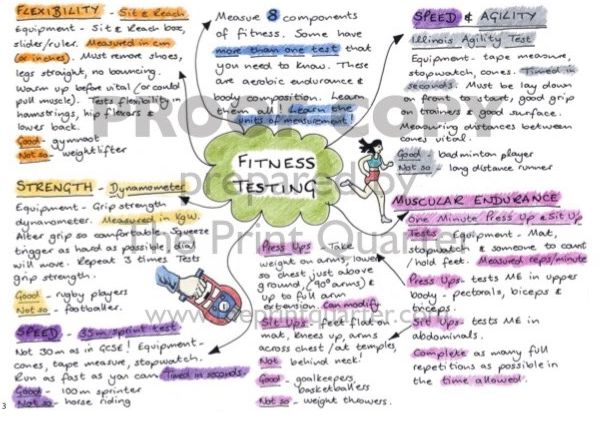 FLEXIBILITY - Sit & Reach
Equipment - Sit & Reach box,
slider/ruler. Measured in cm
(or inches). Must remove shoes,
legs straight, no bouncing.
Warm up before vital (or could
pull muscle). Tests flexibility in
hamstrings, hip flexors &
lower back.
Good - gymnast
Not so - weightlifter
Measure 8 components
of fitness. Some have
more than one test that
you need to know. These
are aerobic endurance &
body composition. Learn
them all! Learn the
units of measurement!
SPEED & AGILITY
Illinois Agility Test
Equipment - tape measure,
stopwatch, cones. Timed in
seconds. Must be lay down
on front to start, good grip
on trainers & good surface.
Measuring distances between
cones vital.
Good - badminton player
Not so - long distance runner
FITNESS
TESTING
STRENGTH - Dynamometer
Equipment - Grip strength
dynanometer. Measured in KgW.
Alter grip so comfortable. Squeeze
trigger as hard as possible, dial
will move. Repeat 3 times. Tests
grip strength.
Good - rugby players
Not so - footballer.
MUSCULAR ENDURANCE
One Minute Press Up & Sit Up
Tests - Equipment - Mat,
stopwatch & someone to count
/hold feet. Measured reps/minute
Press Ups- tests ME in upper
body - pectorals, biceps &
triceps
Sit Ups - tests ME in
abdominals.
Complete as many full
repetitions as possible in
the time allowed.
Press Ups - Take
weight on arms, lower
so chest just above
ground, (90° arms) &
up to full arm
extension. Can modify
Sit Ups - feet flat on
mat, knees up, arms
across chest /at temples,
Not behind neck!
Good - goalkeepers
basketballers
Not so - weight throwers.
SPEED - 35m sprint test
Not 30m as in GCSE! Equipment -
cones, tape measure, stopwatch.
Run as fast as you can. Timed in seconds.
Good - 100m sprinter
Not so - horse riding
PROOF COPY
prepared by
The Print Quarter
www.theprintquarter.co
3